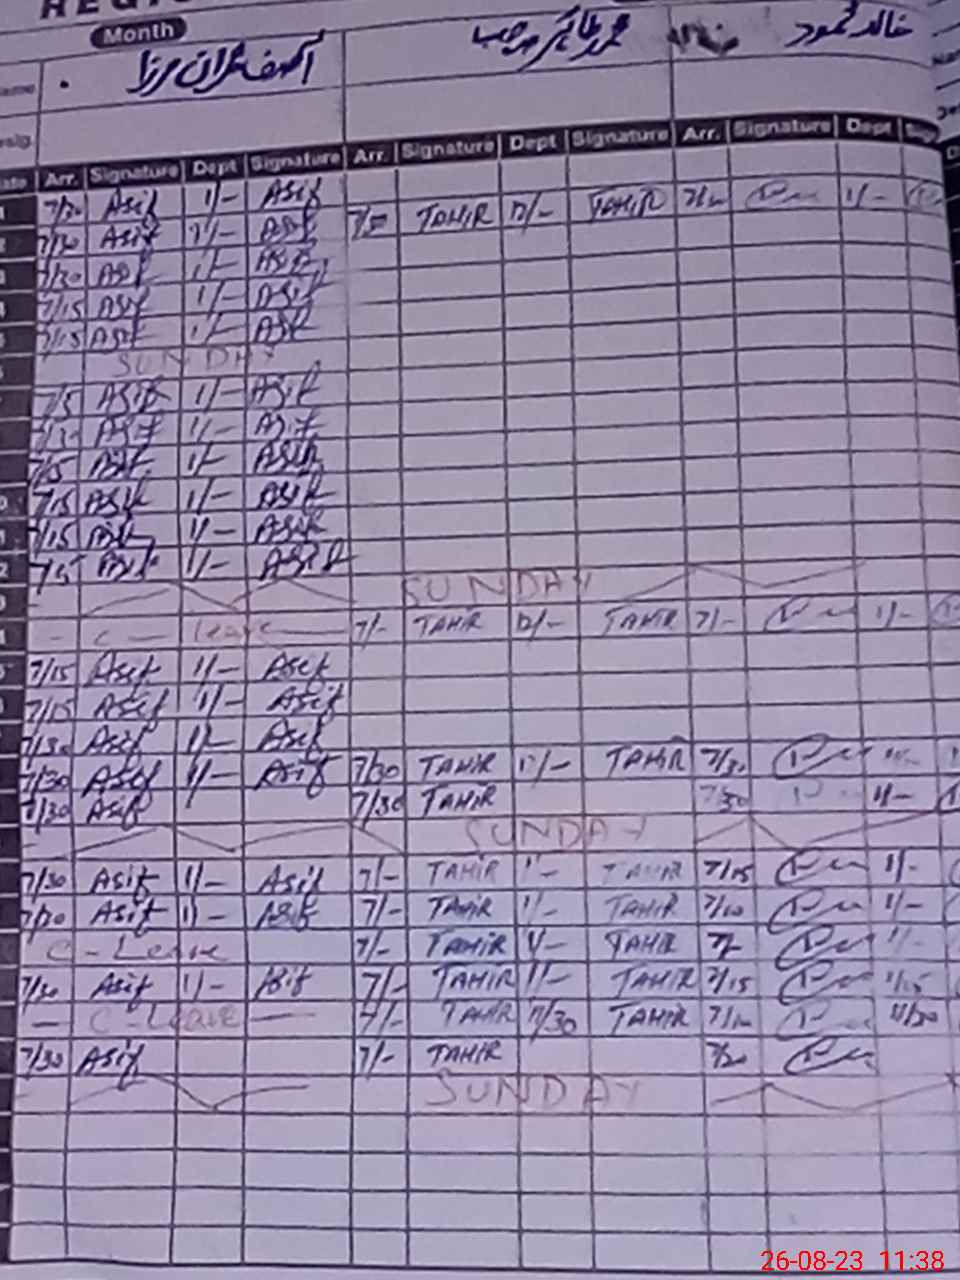 Month
آصف عمران مرزا محمد طاہر صاحب خالد محمود
Arr. Signature Dept Signature Arr. Signature Dept Signature Arr. Signature Dept
7/30 Asif 1/- Asif
7/30 Asif 1/- Asif 7/30 TAHIR 12/- TAHIR 1/-
7/30 Asif 1/- Asif
7/15 Asif 1/- Asif
7/15 Asif 1/- Asif
SUNDAY
7/5 Asif 1/- Asif
Asif 1/- Asif
7/5 Asif 1/- Asif
7/15 Asif 1/- Asif
7/15 Asif 1/- Asif
7/5 Asif 1/- Asif
SUNDAY
- C - leave 7/- TAHIR 12/- TAHIR 7/- 1/-
7/15 Asif 1/- Asif
7/15 Asif 1/- Asif
7/30 Asif 1/- Asif
7/30 Asif 1/- Asif 7/30 TAHIR TAHIR 7/30
7/30 Asif 7/30 TAHIR 7/30 1/-
SUNDAY
7/30 Asif 1/- Asif 7/- TAHIR 1/- TAHIR 7/15 1/-
7/30 Asif 1/- Asif 7/- TAHIR 1/- TAHIR 7/10 1/-
C - Leave 7/- TAHIR 1/- TAHIR 7/- 1/-
7/30 Asif 1/- Asif 7/- TAHIR 1/- TAHIR 7/15 1/15
- C - Leave - 7/- TAHIR 11/30 TAHIR 7/10 11/30
7/30 Asif 7/- TAHIR 7/20
SUNDAY
26-08-23 11:38